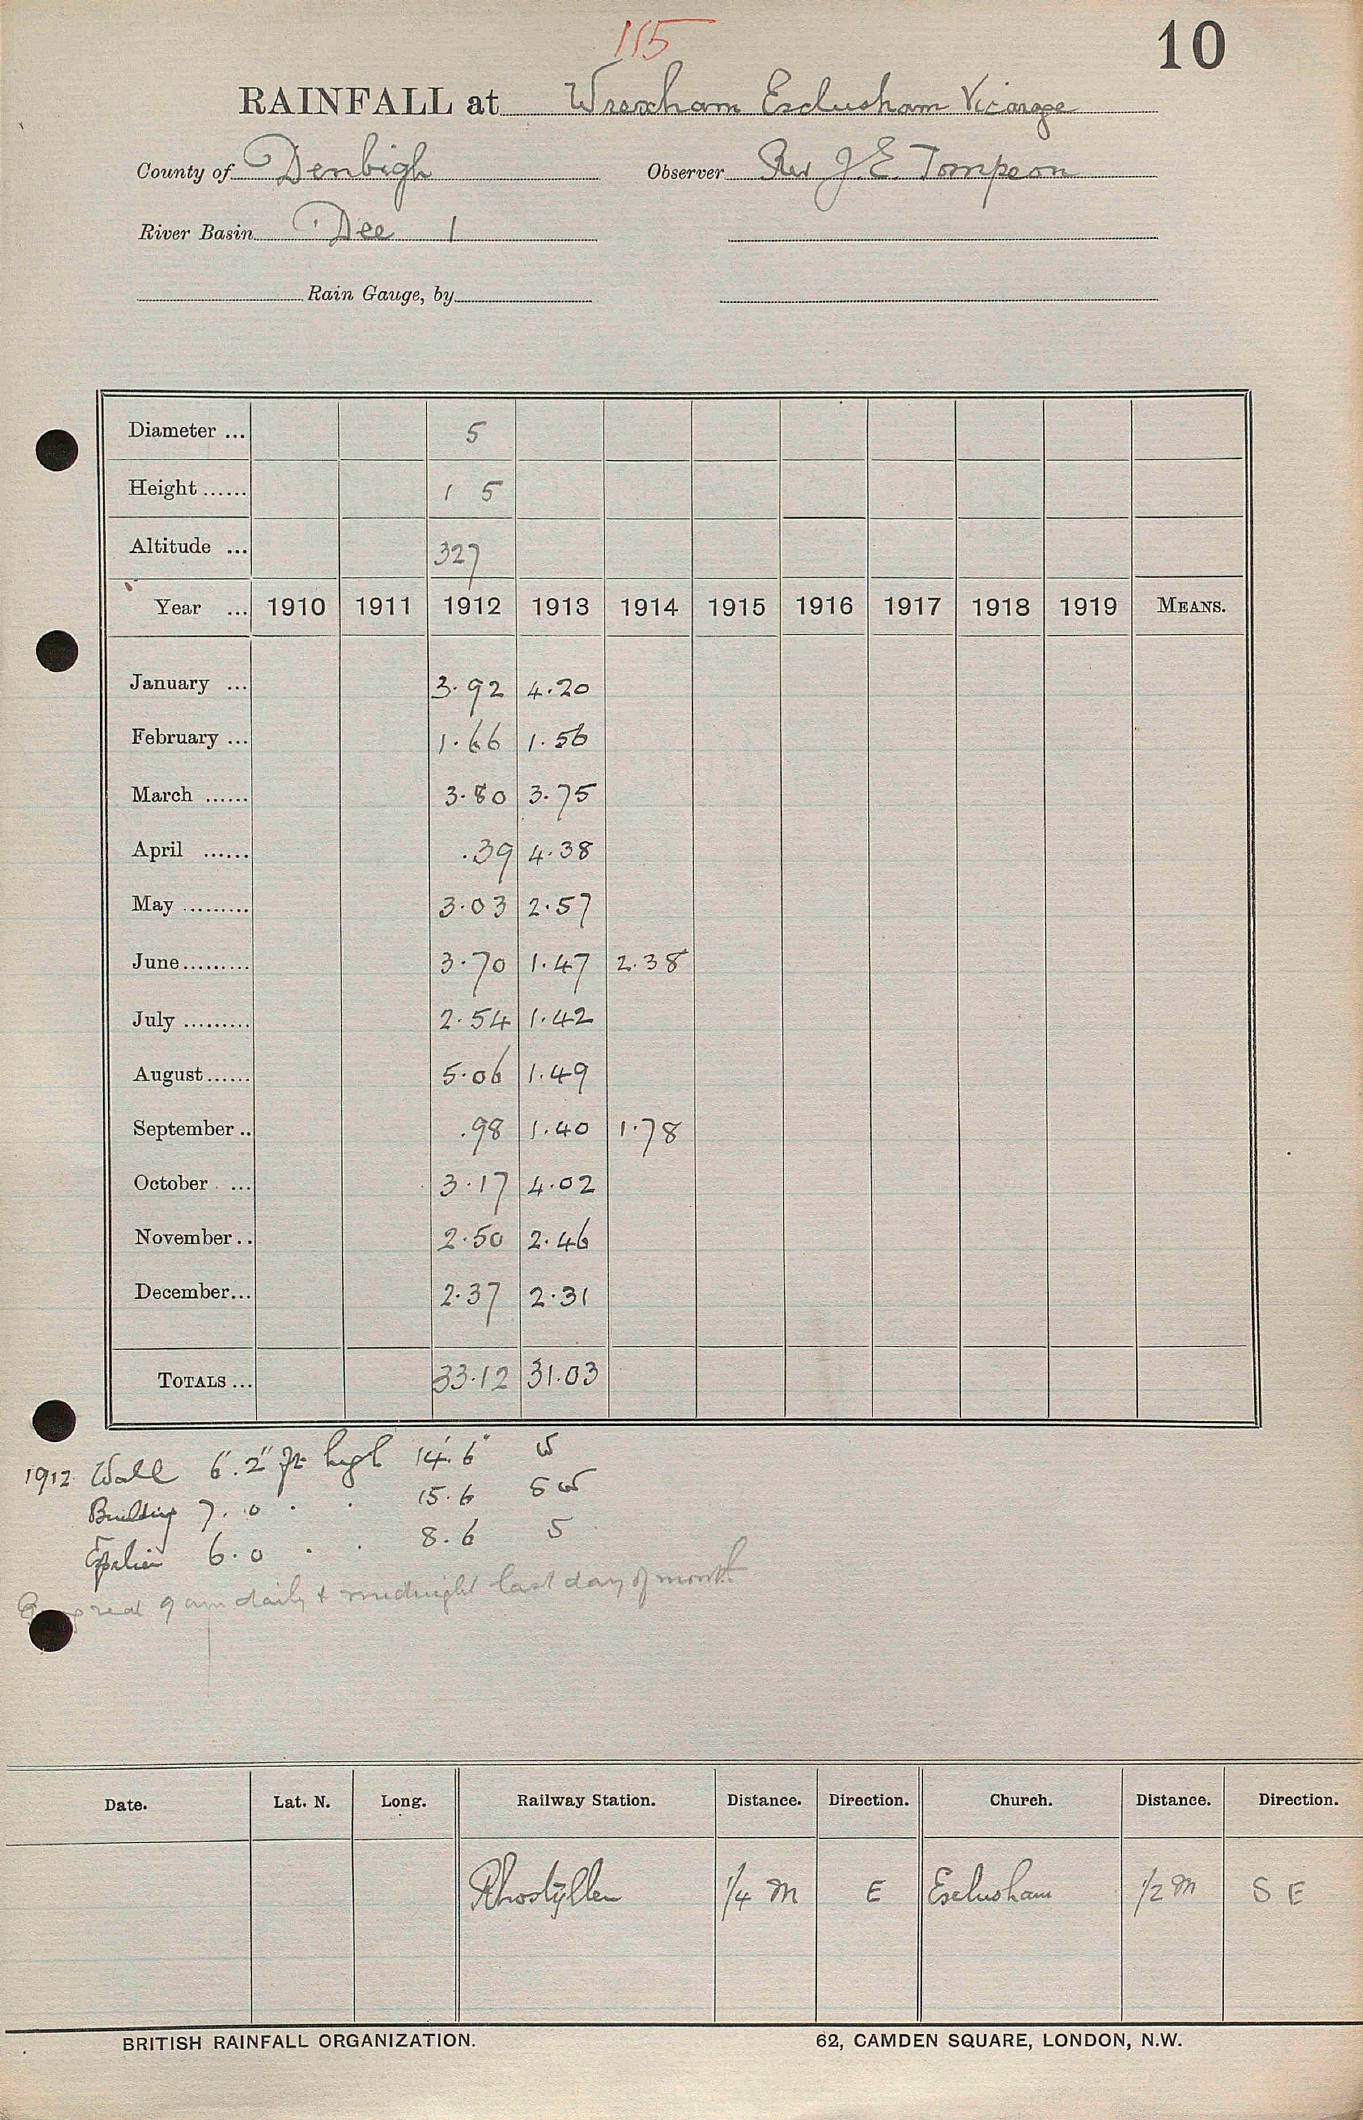 115
10
RAINFALL at Wrexham Esclusham Vicarage
County of Denbigh Observer Rev J. E. Tompson
River Basin Dee 1
Rain Gauge, by
Diameter ... 5
Height ...... 1 5
Altitude ... 327
Year ... 1910 1911 1912 1913 1914 1915 1916 1917 1918 1919 MEANS.
January ... 3.92 4.20
February ... 1.66 1.56
March ...... 3.80 3.75
April ...... .39 4.38
May ......... 3.03 2.57
June......... 3.70 1.47 2.38
July ......... 2.54 1.42
August...... 5.06 1.49
September .. .98 1.40 1.78
October ... 3.17 4.02
November .. 2.50 2.46
December... 2.37 2.31
TOTALS ... 33.12 31.03
1912 Wall 6'.2" ft high 14'.6" W
Building 7.0 . . 15.6 SW
6.0 . . 8.6 S
read 9 am daily & midnight last day of month
Date. Lat. N. Long. Railway Station. Distance. Direction. Church. Distance. Direction.
Rhostyllen 1/4 m E Esclusham 1/2 m S E
BRITISH RAINFALL ORGANIZATION. 62, CAMDEN SQUARE, LONDON, N.W.